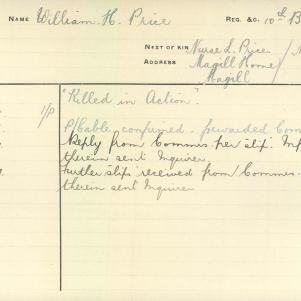 NAME William H. Price REG. &C. 10th B
NEXT OF KIN Nurse L. Price
ADDRESS Magill Home
Magill
"Killed in Action".
1/P P/Cable confirmed. forwarded Com
Reply from Commis. per slip. Inf
therein sent Inquirer.
Further slip received from Commis.
therein sent Inquirer